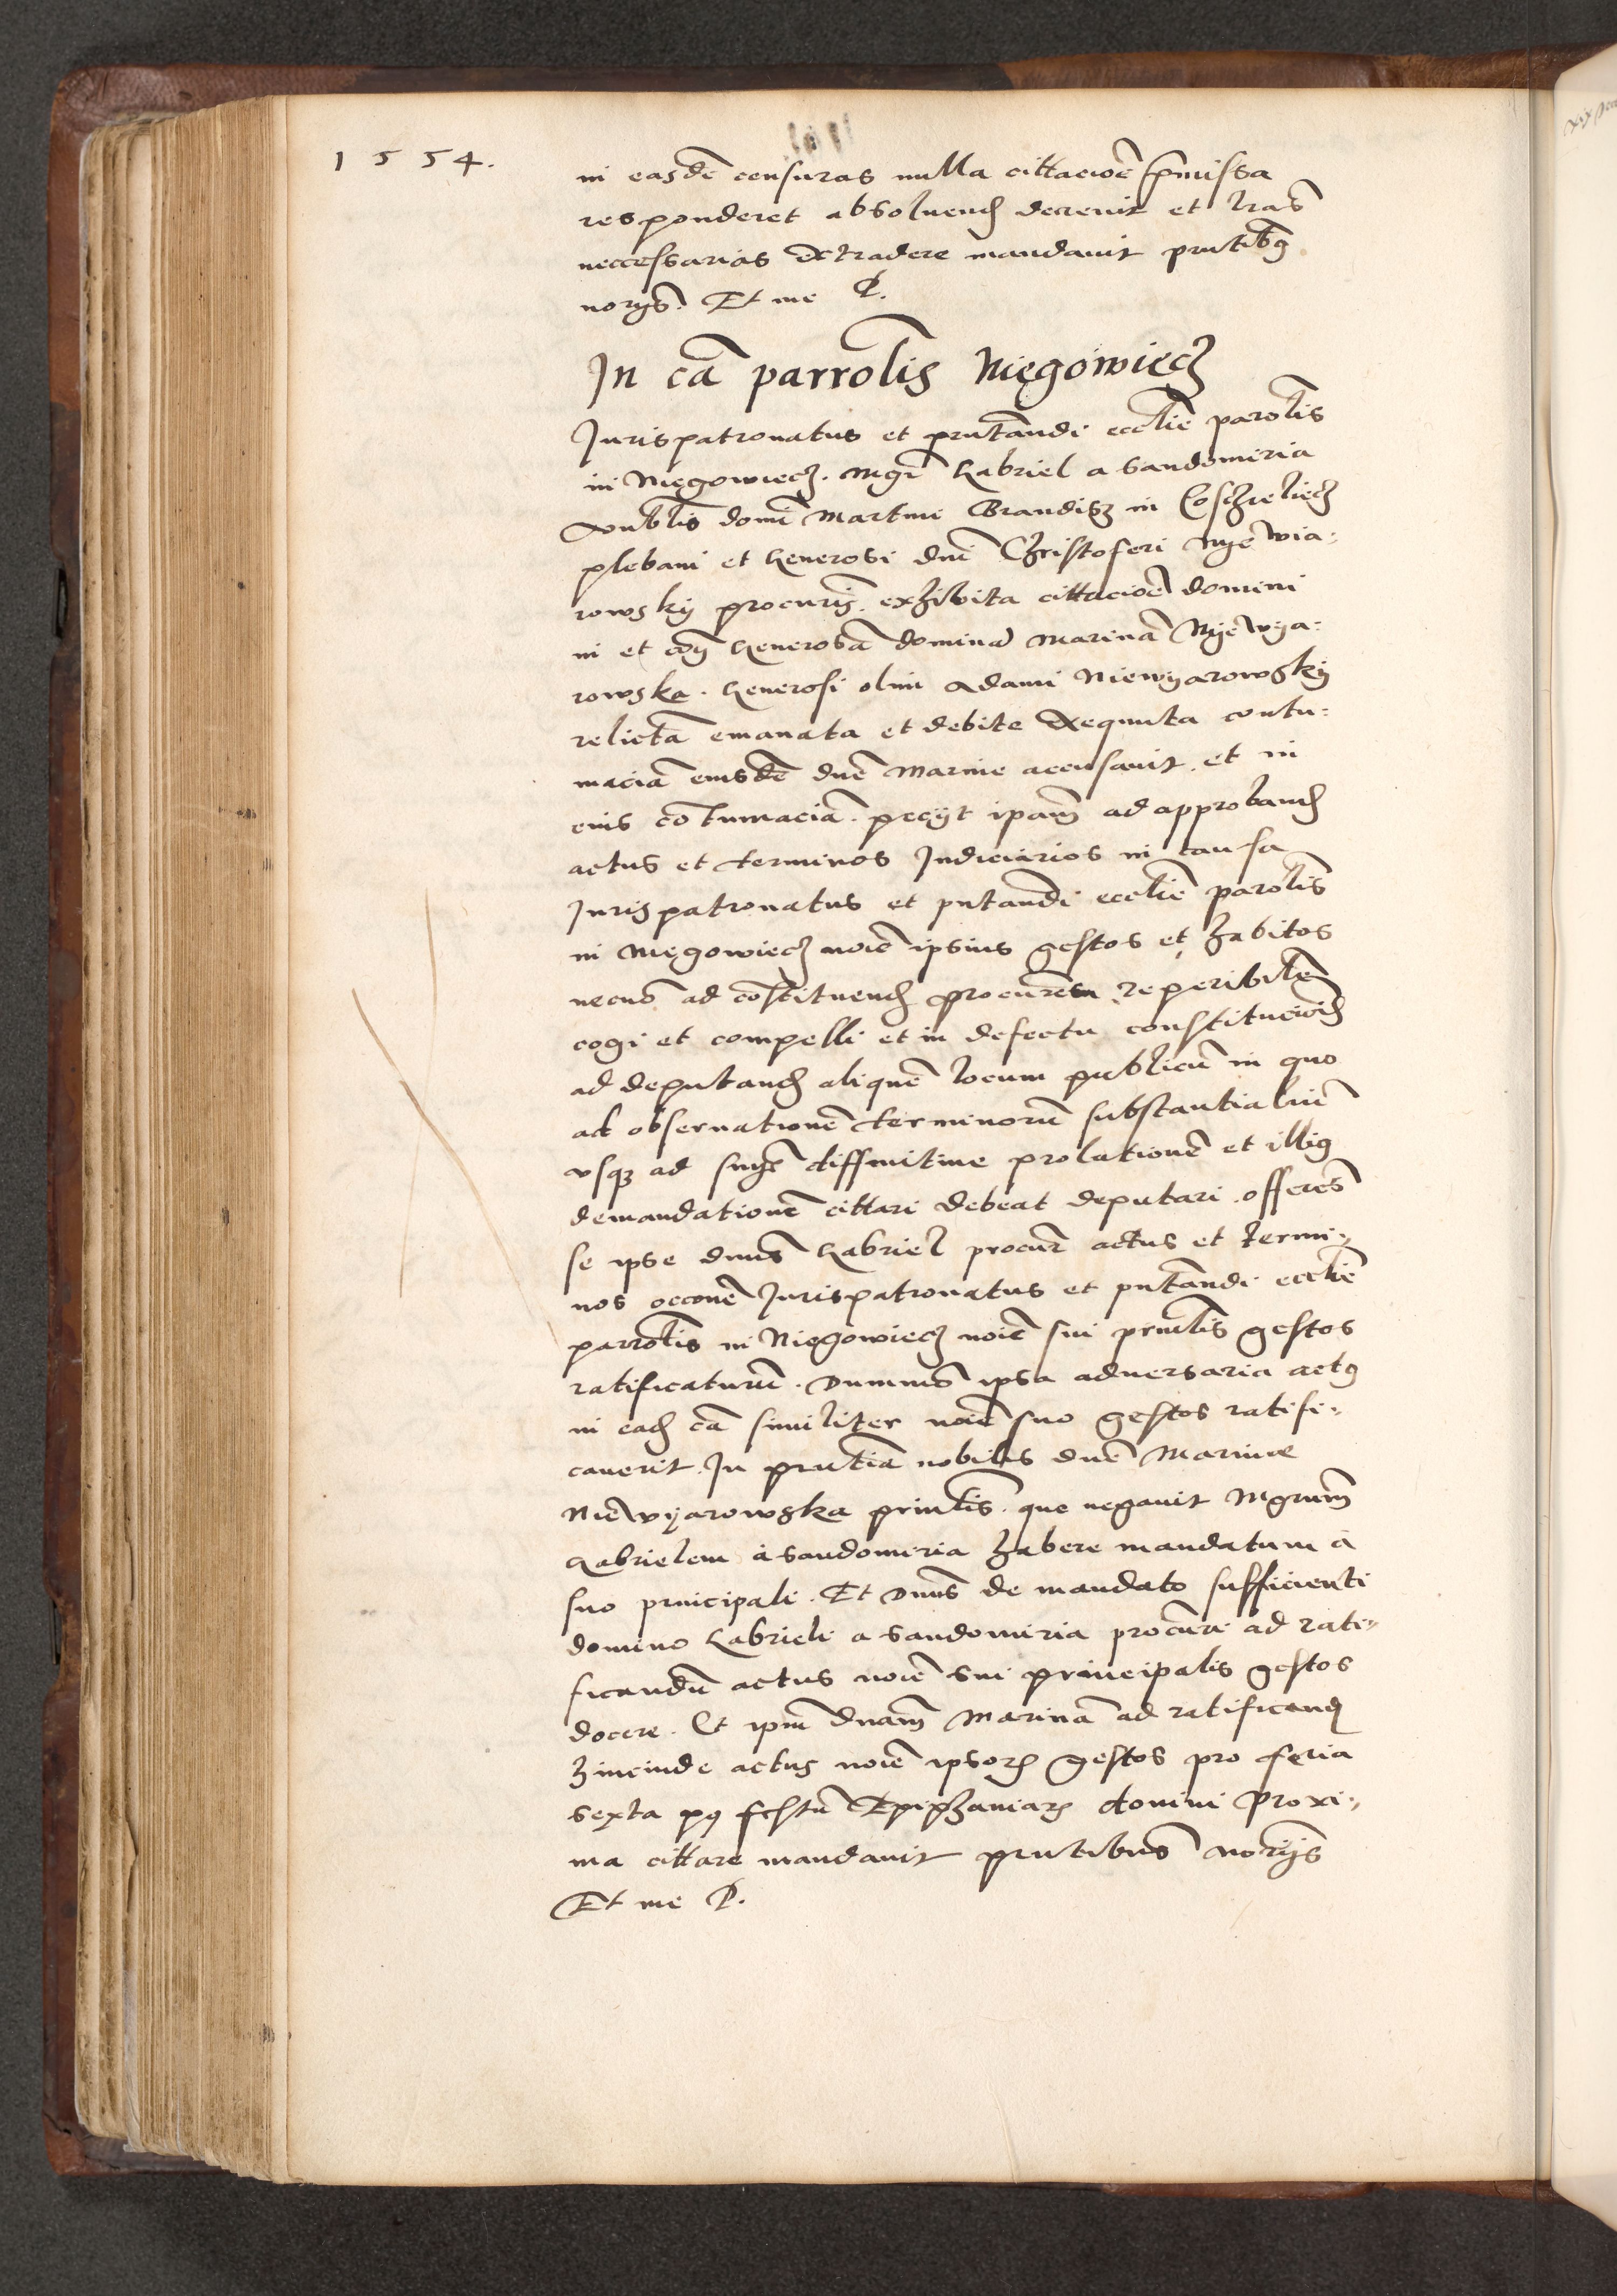 1554.
in easdē censuras nulla cittacioē p̄missa
responderet absoluend decreuit et l̄ras
neccessarias extradere mandauit pn̄tibꝯ
norijs. Et me P.
In cā parrol̄is Niegowiecz
Jurispatronatus et pn̄tandi eccl̄ie parol̄is
in Niegowiecz. Mgr̄ Gabriel a Sandomiria
domī Martini Brandisz in Coschieliecz
plebani et Generosi dn̄i Christoferi Nyewia:
rowsky procur̄. exhibita cittacioē domini
in et con̄ Generosā dominā Marinā Nyewya:
rowska. Generosi olim Adami Niewyarowsky
relictā emanata et debite exequuta contu:
maciā eiusdē dn̄e Marine accusauit. et in
eius cōtumaciā. petijt ipam̄ ad approband
actus et terminos Judiciarios in causa
Jurispatronatus et pn̄tandi eccl̄ie parol̄is
in Niegowiecz noīe ipsius gestos et habitos
necnō ad cōstituend procurem reperibilē
cogi et compelli et in defectu
ad deputand aliquē locum publicū in quo
ad obseruationē terminorū substantialiū
vsqꝫ ad sn̄ie diffinitiue prolationē et illiꝯ
demandationē cittari debeat deputari. offerēs
se ipse dnus̄ Gabriel procur̄ actus et termi:
nos occōnē Jurispatronatus et pn̄tandi eccl̄ie
parrol̄is in Niegowiecz noīe sui prin̄l̄is gestos
ratificaturū. Dummō ipsa aduersaria actꝯ
in ead cā similiter noīe suo gestos ratifi:
cauerit. In pn̄tiā nobilis dn̄e Marinae
Niewyarowska prin̄l̄is. que negauit Mgrum̄
Gabrielem à Sandomiria habere mandatum à
suo principali. Et Dnus̄ de mandato sufficienti
domino Gabrieli a Sandomiria procur̄i ad rati:
ficandū actus noīe sui principalis gestos
docere. Et ipm̄ dnam̄ Marinā ad ratificand
hincinde actus noīe ipsoꝝ gestos pro feria
sexta pꝯ festū Epiphaniaꝝ domini Proxi:
ma cittare mandauit pn̄tibus norijs
Et me P.